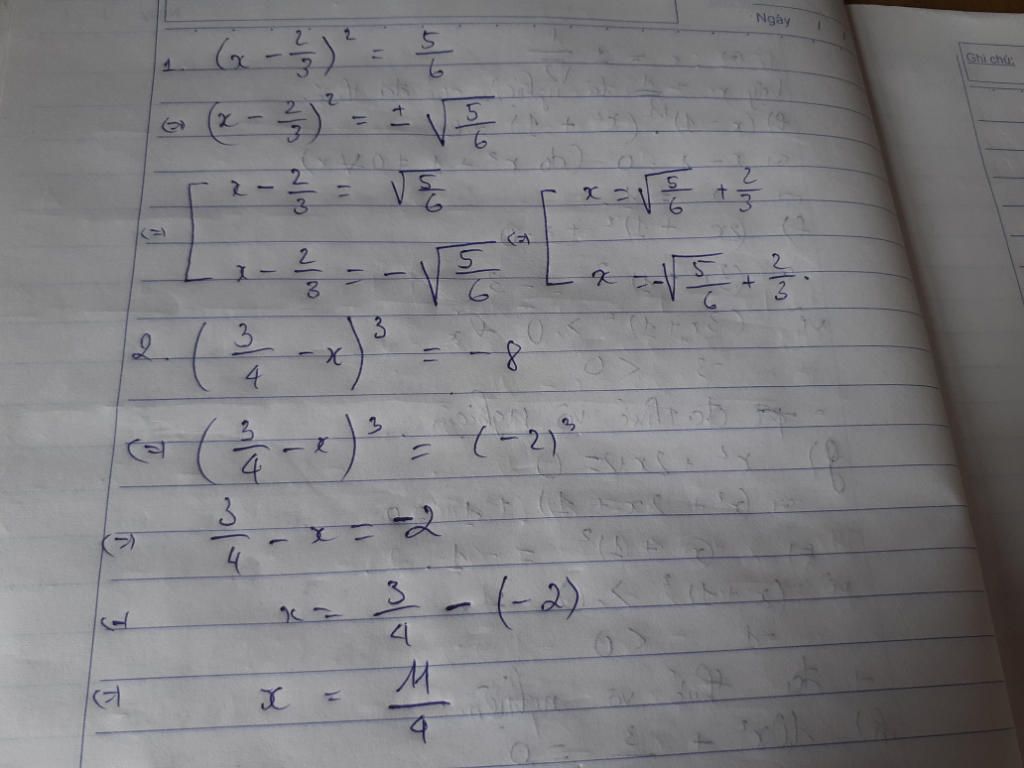 Ngày
Ghi chú:
1. (x - 2/3)² = 5/6
⇔ (x - 2/3)² = ± √(5/6)
⇔ [ x - 2/3 = √(5/6) ⇔ [ x = √(5/6) + 2/3
x - 2/3 = - √(5/6) x = -√(5/6) + 2/3.
2. (3/4 - x)³ = - 8
⇔ (3/4 - x)³ = (-2)³
⇔ 3/4 - x = -2
⇔ x = 3/4 - (-2)
⇔ x = 11/4